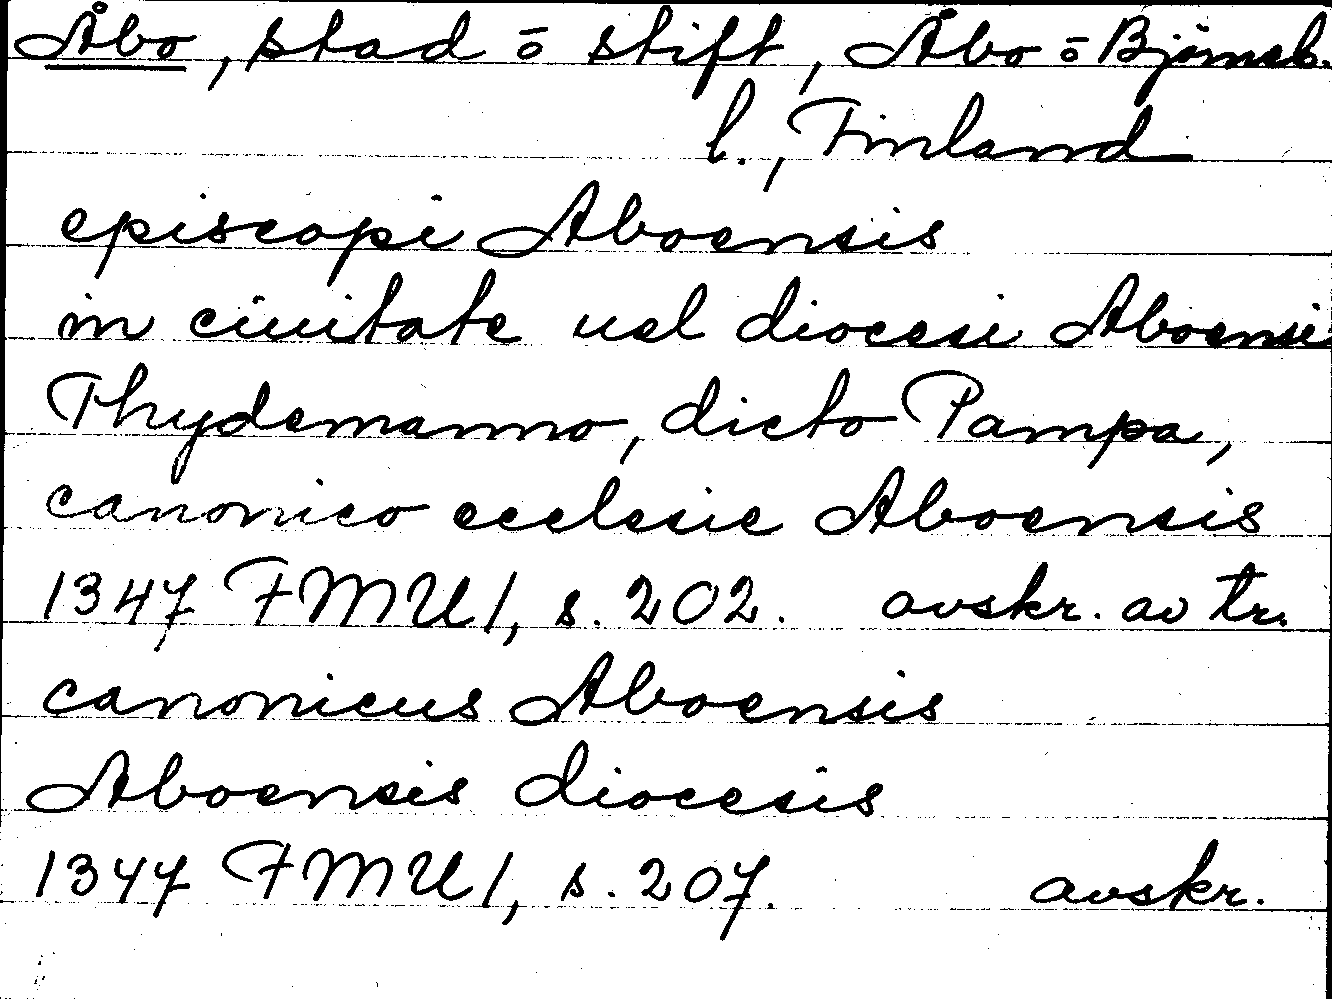 Åbo, stad ō stift, Åbo ō Björneb.
l., Finland
episcopi Aboensis
in ciuitate uel diocesi Aboensi
Thydemanno, dicto Pampa,
canonico ecclesie Aboensis
1347 FMU 1, s. 202. avskr. av tr.
canonicus Aboensis
Aboensis diocesis
1347 FMU 1, s. 207. avskr.